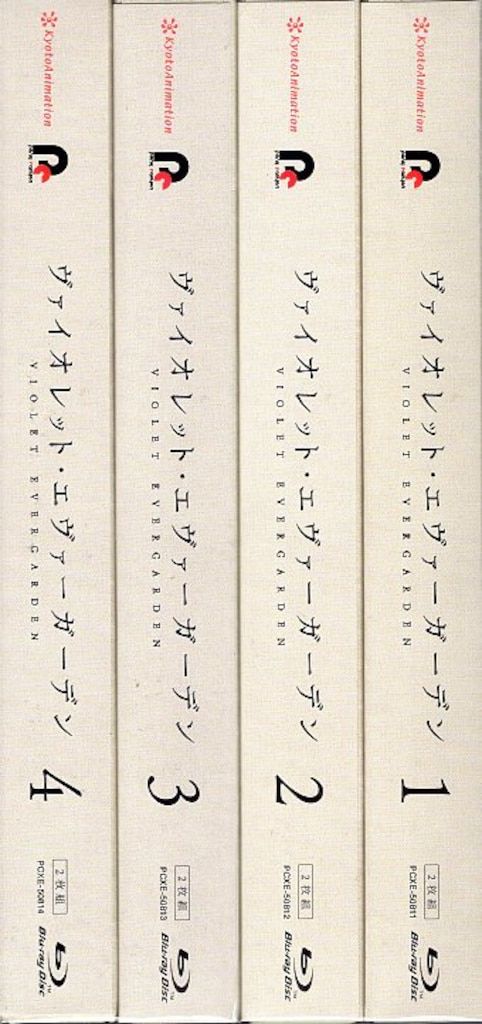 KyotoAnimation
ヴァイオレット・エヴァーガーデン
VIOLET EVERGARDEN
1
2枚組
PCXE-50811
Blu-ray Disc™
KyotoAnimation
ヴァイオレット・エヴァーガーデン
VIOLET EVERGARDEN
2
2枚組
PCXE-50812
Blu-ray Disc™
KyotoAnimation
ヴァイオレット・エヴァーガーデン
VIOLET EVERGARDEN
3
2枚組
PCXE-50813
Blu-ray Disc™
KyotoAnimation
ヴァイオレット・エヴァーガーデン
VIOLET EVERGARDEN
4
2枚組
PCXE-50814
Blu-ray Disc™